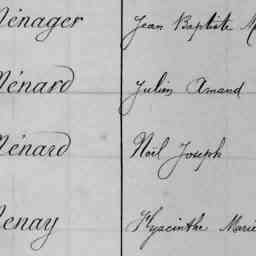 Ménager Jean Baptiste M
Ménard Julien Amand
Ménard Noël Joseph
Menay Hyacinthe Marie